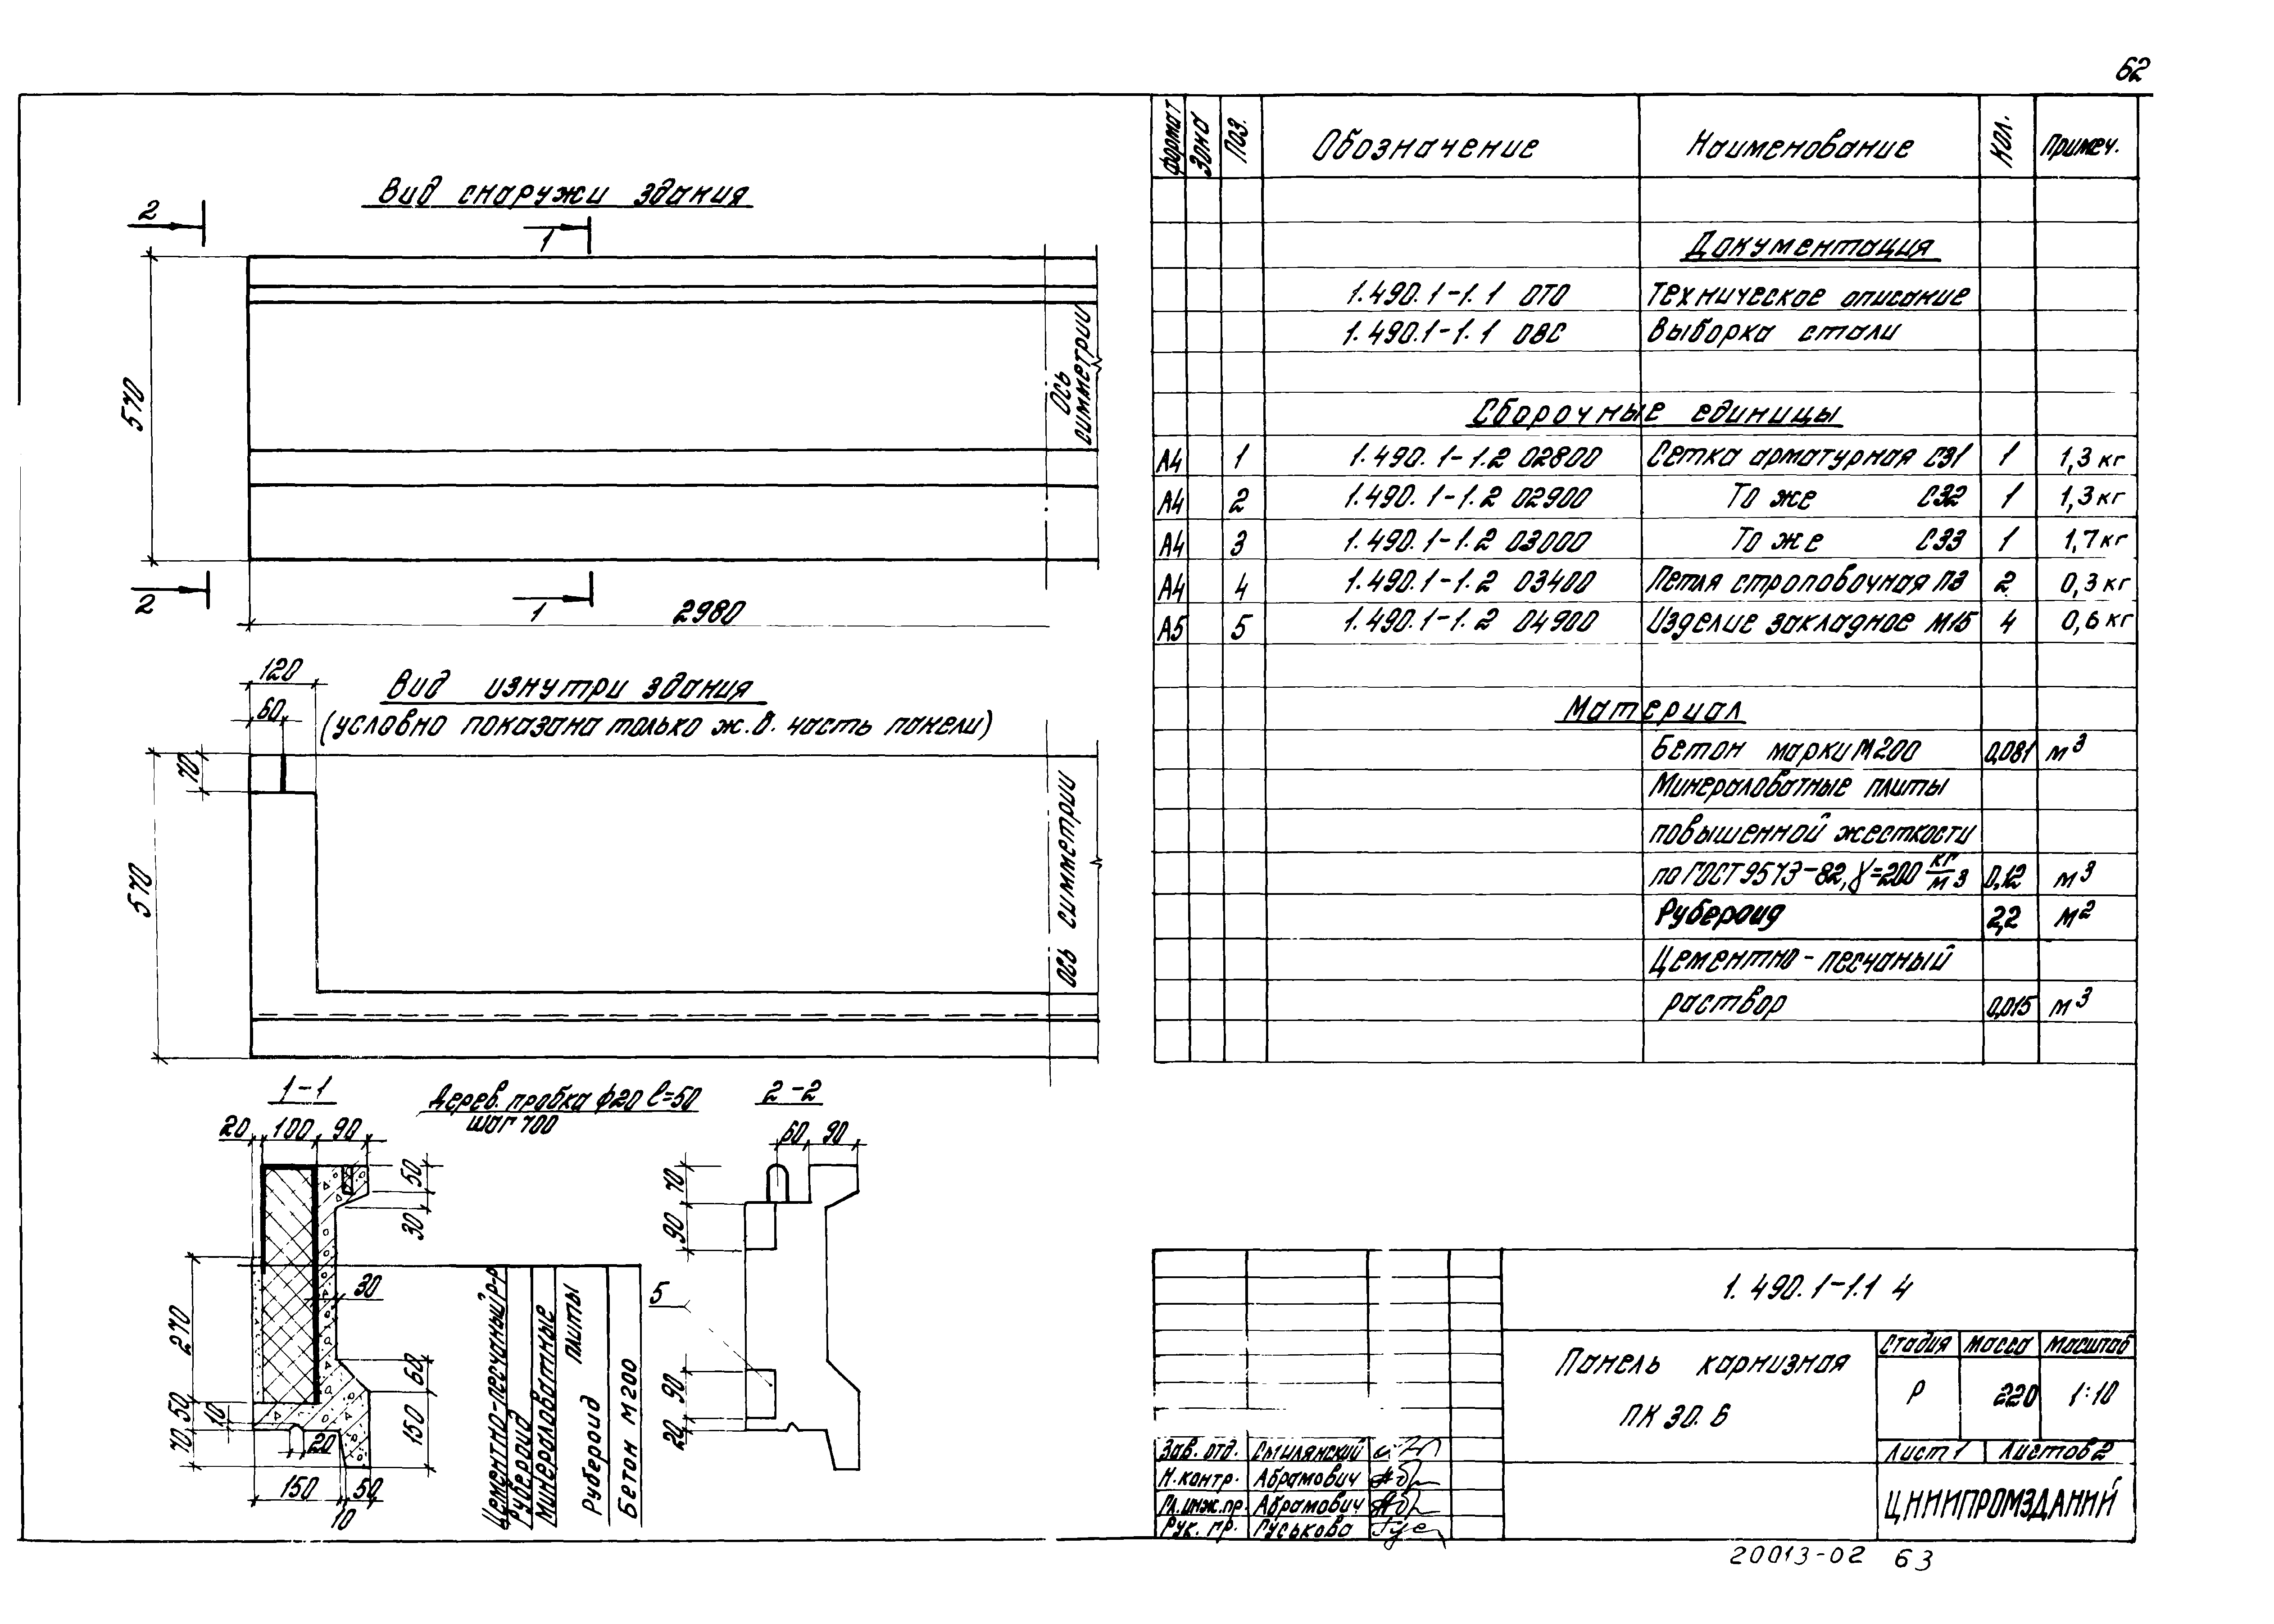 62
Вид снаружи здания
2
1
570
Ось симметрии
2
1
2980
120
60
Вид изнутри здания
(условно показана только ж.б. часть панели)
70
570
ось симметрии
1-1
Дерев. пробка ф20 l=50
шаг 700
2-2
20 100 90
50
30
30
270
60
50
10
70
150
20
150
50
10
Цементно-песчаный р-р
Рубероид
Минераловатные
плиты
Рубероид
Бетон М200
60 90
70
90
5
90
20
Формат Зона Поз. Обозначение Наименование Кол. Примеч.
Документация
1.490.1-1.1 0ТО Техническое описание
1.490.1-1.1 0ВС Выборка стали
Сборочные единицы
А4 1 1.490.1-1.2 02800 Сетка арматурная С31 1 1,3кг
А4 2 1.490.1-1.2 02900 То же С32 1 1,3кг
А4 3 1.490.1-1.2 03000 То же С33 1 1,7кг
А4 4 1.490.1-1.2 03400 Петля строповочная П3 2 0,3кг
А5 5 1.490.1-1.2 04900 Изделие закладное М15 4 0,6кг
Материал
Бетон марки М200 0,081 м3
Минераловатные плиты
повышенной жесткости
по ГОСТ 9573-82, γ=200 кг/м3 0,12 м3
Рубероид 2,2 м2
Цементно-песчаный
раствор 0,015 м3
1.490.1-1.1 4
Панель карнизная
ПК 30.6
Стадия Масса Масштаб
Р 220 1:10
Лист 1 Листов 2
ЦНИИПРОМЗДАНИЙ
Зав. отд. Смилянский
Н.контр. Абрамович
Гл.инж.пр. Абрамович
Рук. гр. Гуськова
20013-02 63